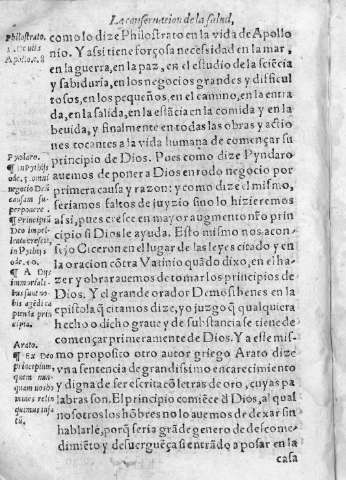 La conseruacion de la salud,
Philostrato.
Apollo. c. 8
como lo dize Philostrato en la vida de Apollo
nio. Y assi tiene forçosa necesidad en la mar,
en la guerra, en la paz, en el estudio de la sciẽcia
y sabiduria, en los negocios grandes y dificul
tosos, en los pequeños, en el camino, en la entra
da, en la salida, en la estãcia en la comida y en la
beuida, y finalmente en todas las obras y actio
nes tocantes a la vida humana de començar su
principio de Dios. Pues como dize Pyndaro
auemos de poner a Dios en todo negocio por
primera causa y razon: y como dize el mismo,
seriamos faltos de juyzio sino lo hiziéremos
assi, pues crece en mayor augmento nr̃o prin
cipio si Dios le ayuda. Esto mismo nos acon-
sejo Ciceron en el lugar de las leyes citado y en
la oracion cõtra Vatinio quãdo dixo, en el ha-
zer y obrar auemos de tomar los principios de
Dios. Y el grande orador Demosthenes en la
epistola q̃ citamos dize, yo juzgo q̃ qualquiera
hecho o dicho graue y de substancia se tiene de
començar primeramente de Dios. Y a este mis-
mo proposito otro autor griego Arato dize
vna sentencia de grandissimo encarecimiento
y digna de ser escrita cõ letras de oro, cuyas pa
labras son. El principio comiẽce d̃ Dios, al qual
nosotros los hõbres no lo auemos de dexar sin
hablarle, porq̃ seria grãde genero de descome-
dimiẽto y desuerguẽça si entrãdo a posar en la
casa
Pyndaro.
¶ In Pythijs
ode. 5. omni
negocio Deũ
causam su-
perponere.
¶ Principiũ
Deo impel-
lente crescit,
in Pythijs
ode. 10.
¶ A Dijs
immortali-
bus sunt no-
bis agẽdi ca
piunda prin
cipia.
Arato.
¶ Ex Deo
principium,
quem nun-
quam nos ho
mines relin
quemus infa
tũ.